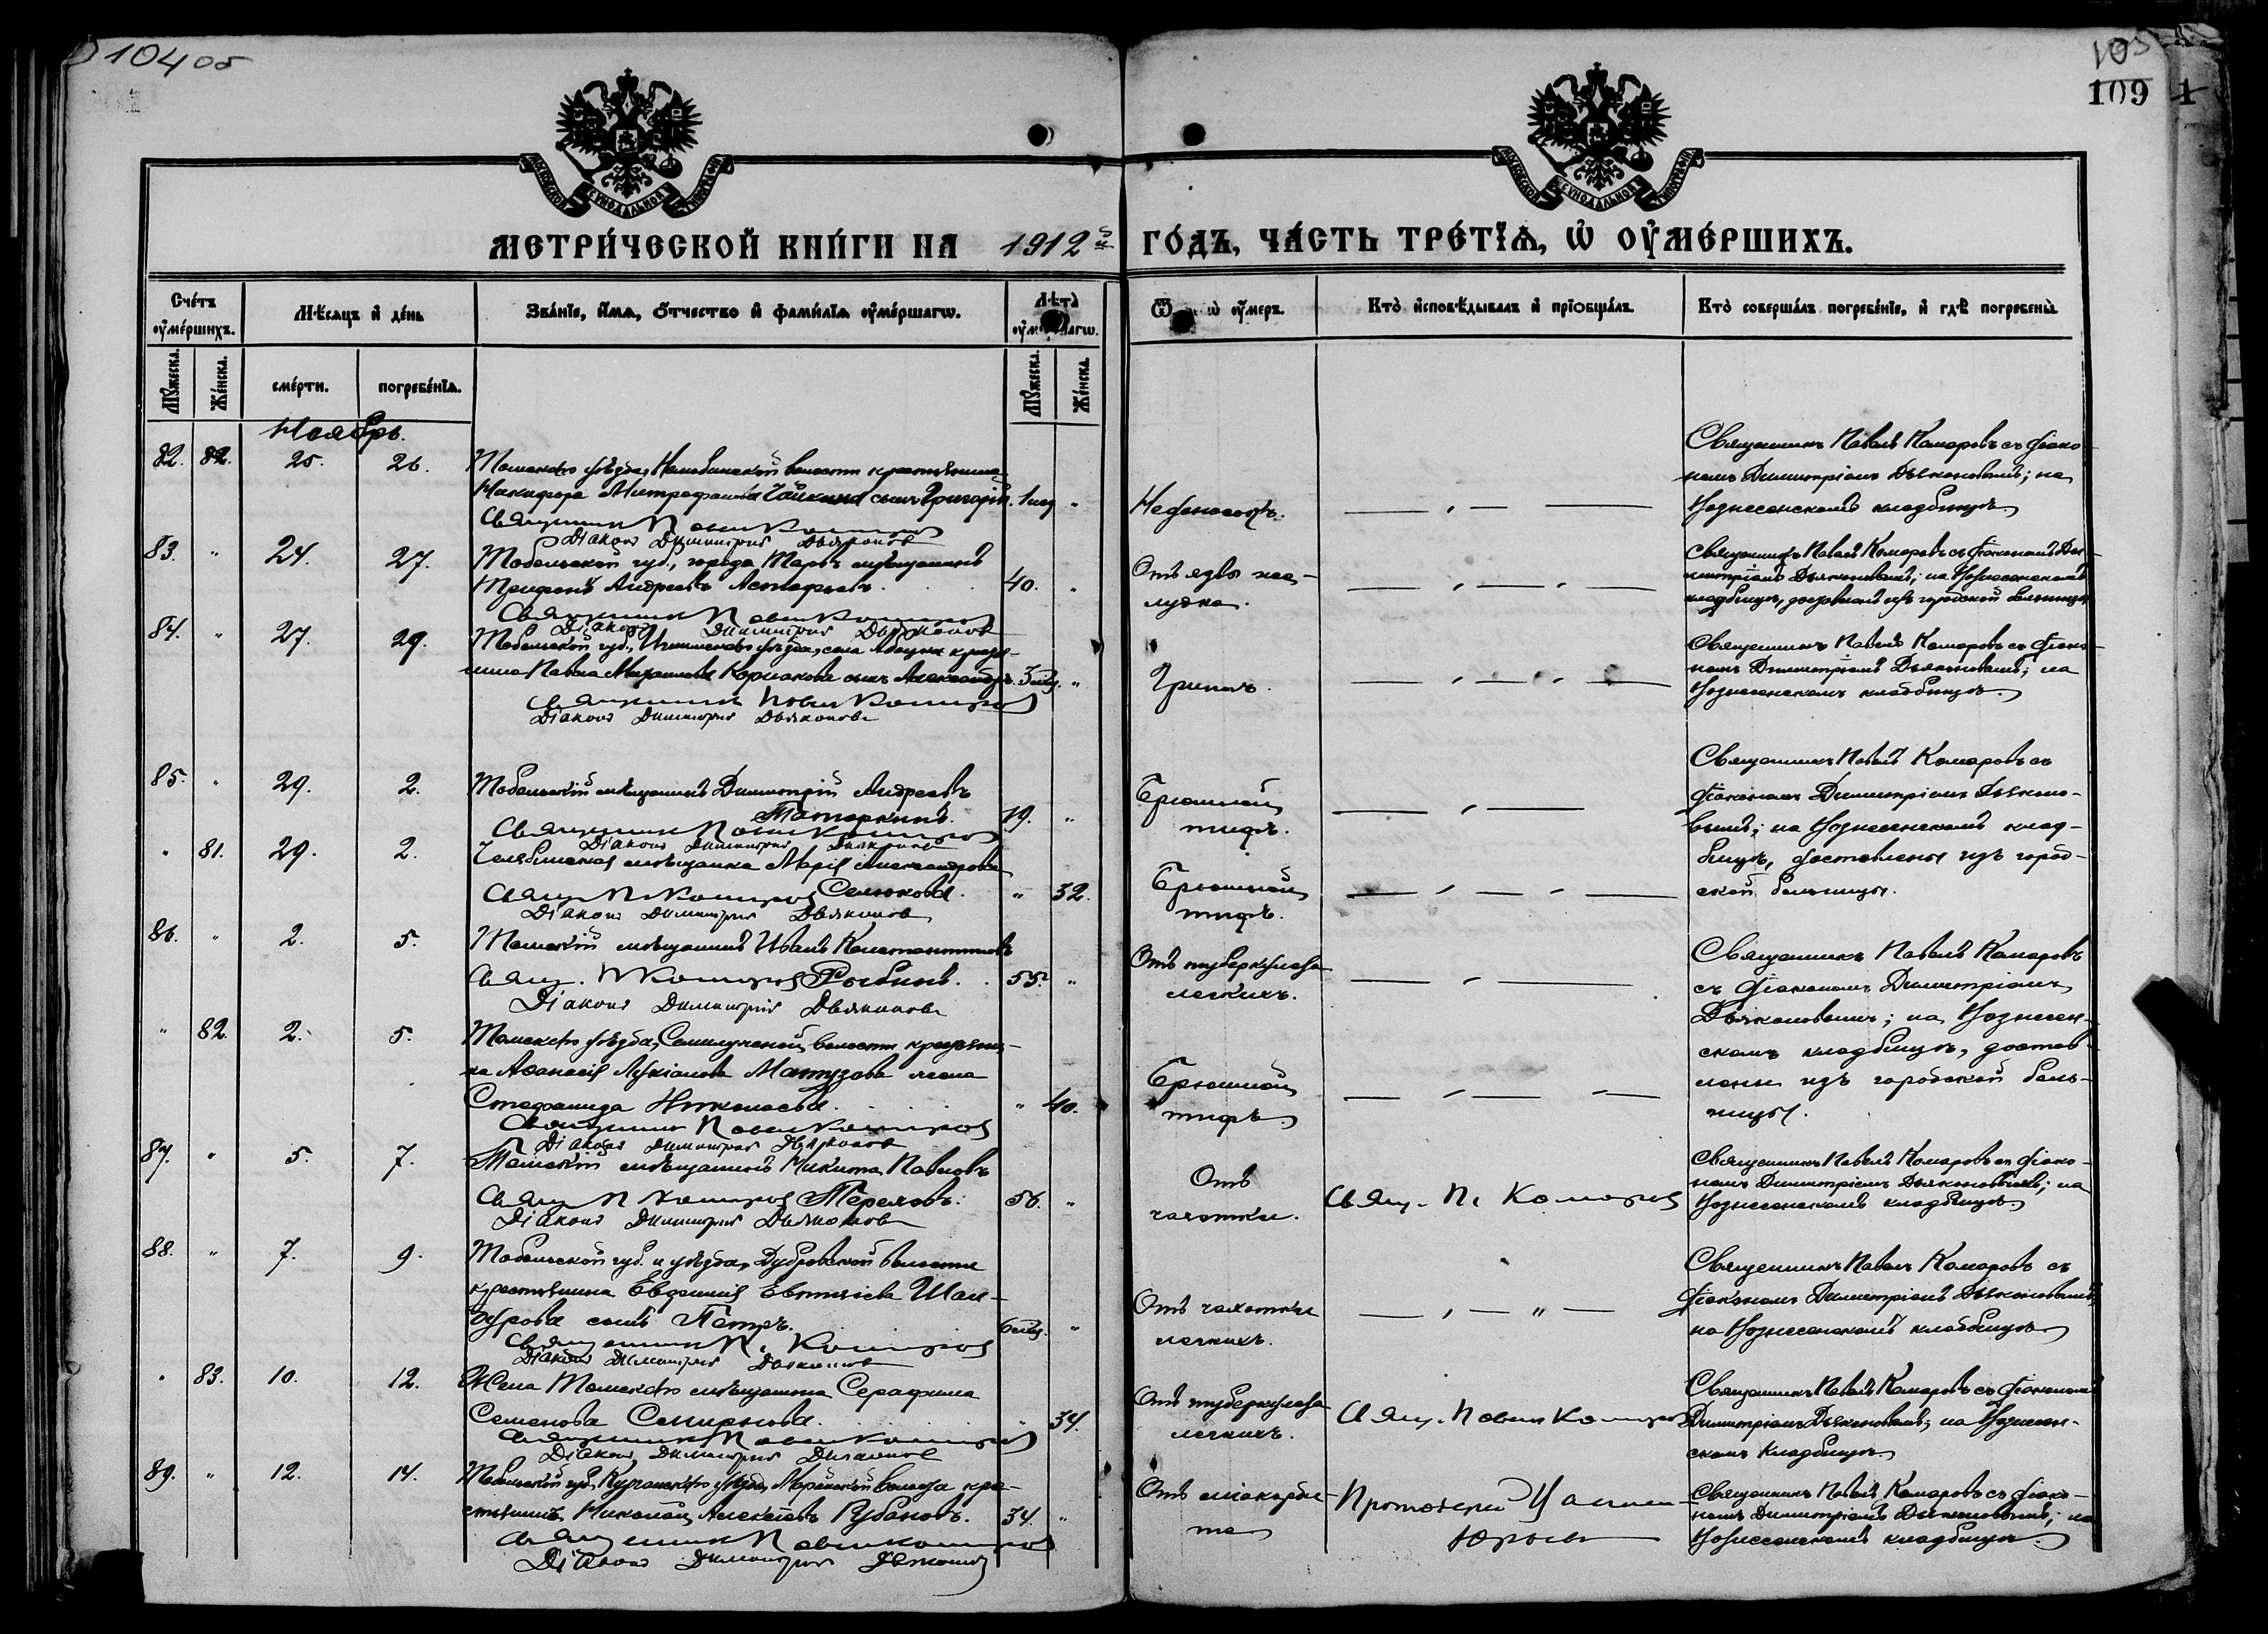 104 об
105
109
МОСКОВСКОЙ СУНОДАЛЬНОЙ ТИПОГРАФІИ
МОСКОВСКОЙ СУНОДАЛЬНОЙ ТИПОГРАФІИ
МЕТРИ́ЧЕСКОЙ КНИ́ГИ НА 1912й ГО́ДЪ, ЧА́СТЬ ТРЕ́ТЇѦ, Ѡ҆ ОУ҆МЕ́РШИХЪ.
Сче́тъ оу҆ме́ршихъ.
Мѣ́сяцъ и҆ де́нь
Зва́нїе, и҆́мѧ, ѻ҆́тчество и҆ фами́лїѧ оу҆ме́ршагѡ.
Лѣ́та
Кто̀ и҆сповѣ́дывалъ и҆ прїѡбща́лъ.
Кто̀ соверша́лъ погребе́нїе, и҆ гдѣ̀ погребены̀.
Мꙋ́жеска.
Же́нска.
сме́рти.
погребе́нїѧ.
Мꙋ́жеска.
Же́нска.
Ноябрь.
82. 82. 25. 26. Томскаго уѣзда, волости крестьянина
Никифора Митрофанова сынъ Григорій. 1 нед "
Священникъ Павелъ Комаровъ
Діаконъ Димитрій Дьяконовъ
Священникъ Павелъ Комаровъ съ діако-
номъ Димитріемъ Дьяконовымъ; на
Вознесенскомъ кладбищѣ
83. " 24. 27. Тобольской губ., города Тары мѣщанинъ
Трифонъ Андреевъ Астафьевъ. 40. "
Священникъ Павелъ Комаровъ
Діаконъ Димитрій Дьяконовъ
Отъ язвы же-
лудка.
Священникъ Павелъ Комаровъ съ діакономъ Ди-
митріемъ Дьяконовымъ; на Вознесенскомъ
кладбищѣ, доставленъ изъ городской больницы
84. " 27. 29. Тобольской губ., Ишимскаго уѣзда, села кресть-
нина Павла Михаилова Корнакова сынъ Александръ. 3 мѣс. "
Священникъ Павелъ Комаровъ
Діаконъ Димитрій Дьяконовъ
Грипъ.
Священникъ Павелъ Комаровъ съ діако-
номъ Димитріемъ Дьяконовымъ; на
Вознесенскомъ кладбищѣ.
85. " 29. 2. Тобольскій мѣщанинъ Димитрій Андреевъ
Татаркинъ. 19. "
Священникъ Павелъ Комаровъ
Діаконъ Димитрій Дьяконовъ
Брюшной
тифъ.
Священникъ Павелъ Комаровъ съ
діакономъ Димитріемъ Дьяконо-
вымъ; на Вознесенскомъ клад-
бищѣ, доставлены изъ город-
ской больницы.
" 81. 29. 2. Челябинская мѣщанка Марія Александрова
Свящ. П. Комаровъ Селюкова. " 32.
Діаконъ Димитрій Дьяконовъ
Брюшной
тифъ.
86. " 2. 5. Томскій мѣщанинъ Иванъ Константиновъ
Свящ. П Комаровъ Рыбинъ. 55. "
Діаконъ Димитрій Дьяконовъ
Отъ туберкулеза
легкихъ.
Священникъ Павелъ Комаровъ
съ діакономъ Димитріемъ
Дьяконовымъ; на Вознесен-
скомъ кладбищѣ, достав-
лены изъ городской боль-
ницы.
" 82. 2. 5. Томскаго уѣзда, Семилужной волости крестьяни-
на Аѳанасія Лукіанова Матузова жена
Стефанида " 40.
Священникъ Павелъ Комаровъ
Діаконъ Димитрій Дьяконовъ
Брюшной
тифъ
87. " 5. 7. Томскій мѣщанинъ Никита Павловъ
Свящ П Комаровъ Тереховъ. 56. "
Діаконъ Димитрій Дьяконовъ
Отъ
чахотки.
Свящ. П. Комаровъ
Священникъ Павелъ Комаровъ съ діако-
номъ Димитріемъ Дьяконовымъ; на
Вознесенскомъ кладбищѣ
88. " 7. 9. Тобольской губ. и уѣзда, Дубровской волости
крестьянина Евдокима Шан-
сынъ Петръ. 6 мѣс. "
Священникъ П. Комаровъ
Діаконъ Димитрій Дьяконовъ
Отъ чахотки
легкихъ.
Священникъ Павелъ Комаровъ съ
діакономъ Димитріемъ Дьяконовымъ;
на Вознесенскомъ кладбищѣ
" 83. 10. 12. Жена Томскаго мѣщанина Серафима
Семенова Смирнова. " 34.
Священникъ Павелъ Комаровъ
Діаконъ Димитрій Дьяконовъ
Отъ туберкулеза
легкихъ.
Свящ. Павелъ Комаровъ
Священникъ Павелъ Комаровъ съ діакономъ
Димитріемъ Дьяконовымъ; на Вознесен-
скомъ кладбищѣ
89. " 12. 14. Тобольской губ., Курганскаго уѣзда, Марайской волости кре-
стьянинъ Николай Алексѣевъ Рубановъ. 34. "
Священникъ Павелъ Комаровъ
Діаконъ Димитрій Дьяконовъ
Отъ міокарди-
та
Протоіерей
Юрьевъ
Священникъ Павелъ Комаровъ съ діако-
номъ Димитріемъ Дьяконовымъ; на
Вознесенскомъ кладбищѣ.